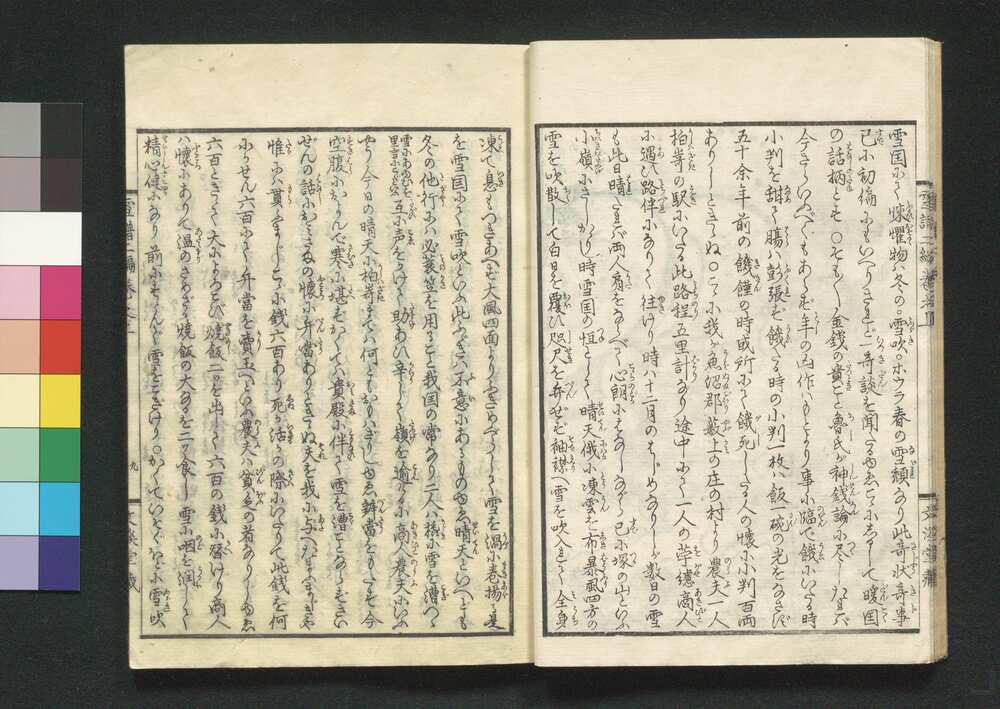 雪国にて悚懼物ハ冬の○雪吹○ホウラ春の雪頽なり此奇状奇事
已に初編にもいへりされど一奇談を聞たるゆゑこゝにしるして暖国
の話柄とす○そも〳〵金銭の貴こと魯氏が神銭論に尽したれバ
今さらいふべくもあらず年の凶作ハもとより事に臨で餓にいたる時
小判を甜て腸ハ彭張ず餓たる時の小判一枚ハ飯一碗の光をなさず
五十余年前の饑饉の時或所にて餓死したる人の懐に小判百両
ありしときゝぬ○こゝに我が魚沼郡藪上の庄の村より農夫一人
柏崎の駅にいたる此路程五里計なり途中にて一人の苧纑商人
に遇ひ路伴になりて往けり時ハ十二月のはじめなりしが数日の雪
も此日晴たれバ両人肩をならべて心朗にはなしながら已に塚の山といふ
小嶺にさしかゝりし時雪国の恒として晴天俄に凍雲を布暴風四方の
雪を吹散して白日を覆ひ咫尺を弁ぜず袖襟へ雪を吹入れて全身
凍て息もつきあへず大風四面よりふきめぐらして雪を渦に巻揚る是
を雪国にて雪吹といふ此ふゞきハ不意にあるものゆゑ晴天といへども
冬の他行にハ必蓑笠を用ること我国の常なり二人ハ橇に雪を漕つゝ
雪にあゆむを里言にこぐといふ互に声をかけて助あひ辛じて嶺を逾たるに商人農夫にいふ
やう今日の晴天に柏崎までハ何ともおもハざりしゆゑ弁当をもたず今
空腹におよんで寒に堪ずかくてハ貴殿に伴て雪を漕ことならずさい
ぜんの話におみさまの懐に弁当ありときゝぬ夫を我に与へたまふまじきや
惟にハ貰まじこゝに銭六百あり死か活るかの際にいたりて此銭を何
にかせん六百にて弁当を買玉へといふ農夫ハ貧乏の者なりしゆゑ
六百ときゝて大によろこび焼飯二ツを出して六百の銭に替けり商人
ハ懐にありて温のさめざる焼飯の大なるを二ツ食し雪に咽を潤して
精心健になり前にすゝんで雪をこぎけり○かくていそぐほどに雪吹